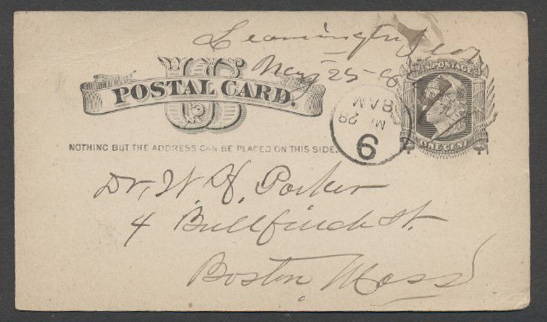 Leamington
May 25 - 8
US
POSTAL CARD.
U.S. POSTAGE
ONE CENT
NOTHING BUT THE ADDRESS CAN BE PLACED ON THIS SIDE.
9
MY 28
8 AM
Dr. W. H. Parker
4 Bullfinch St.
Boston, Mass